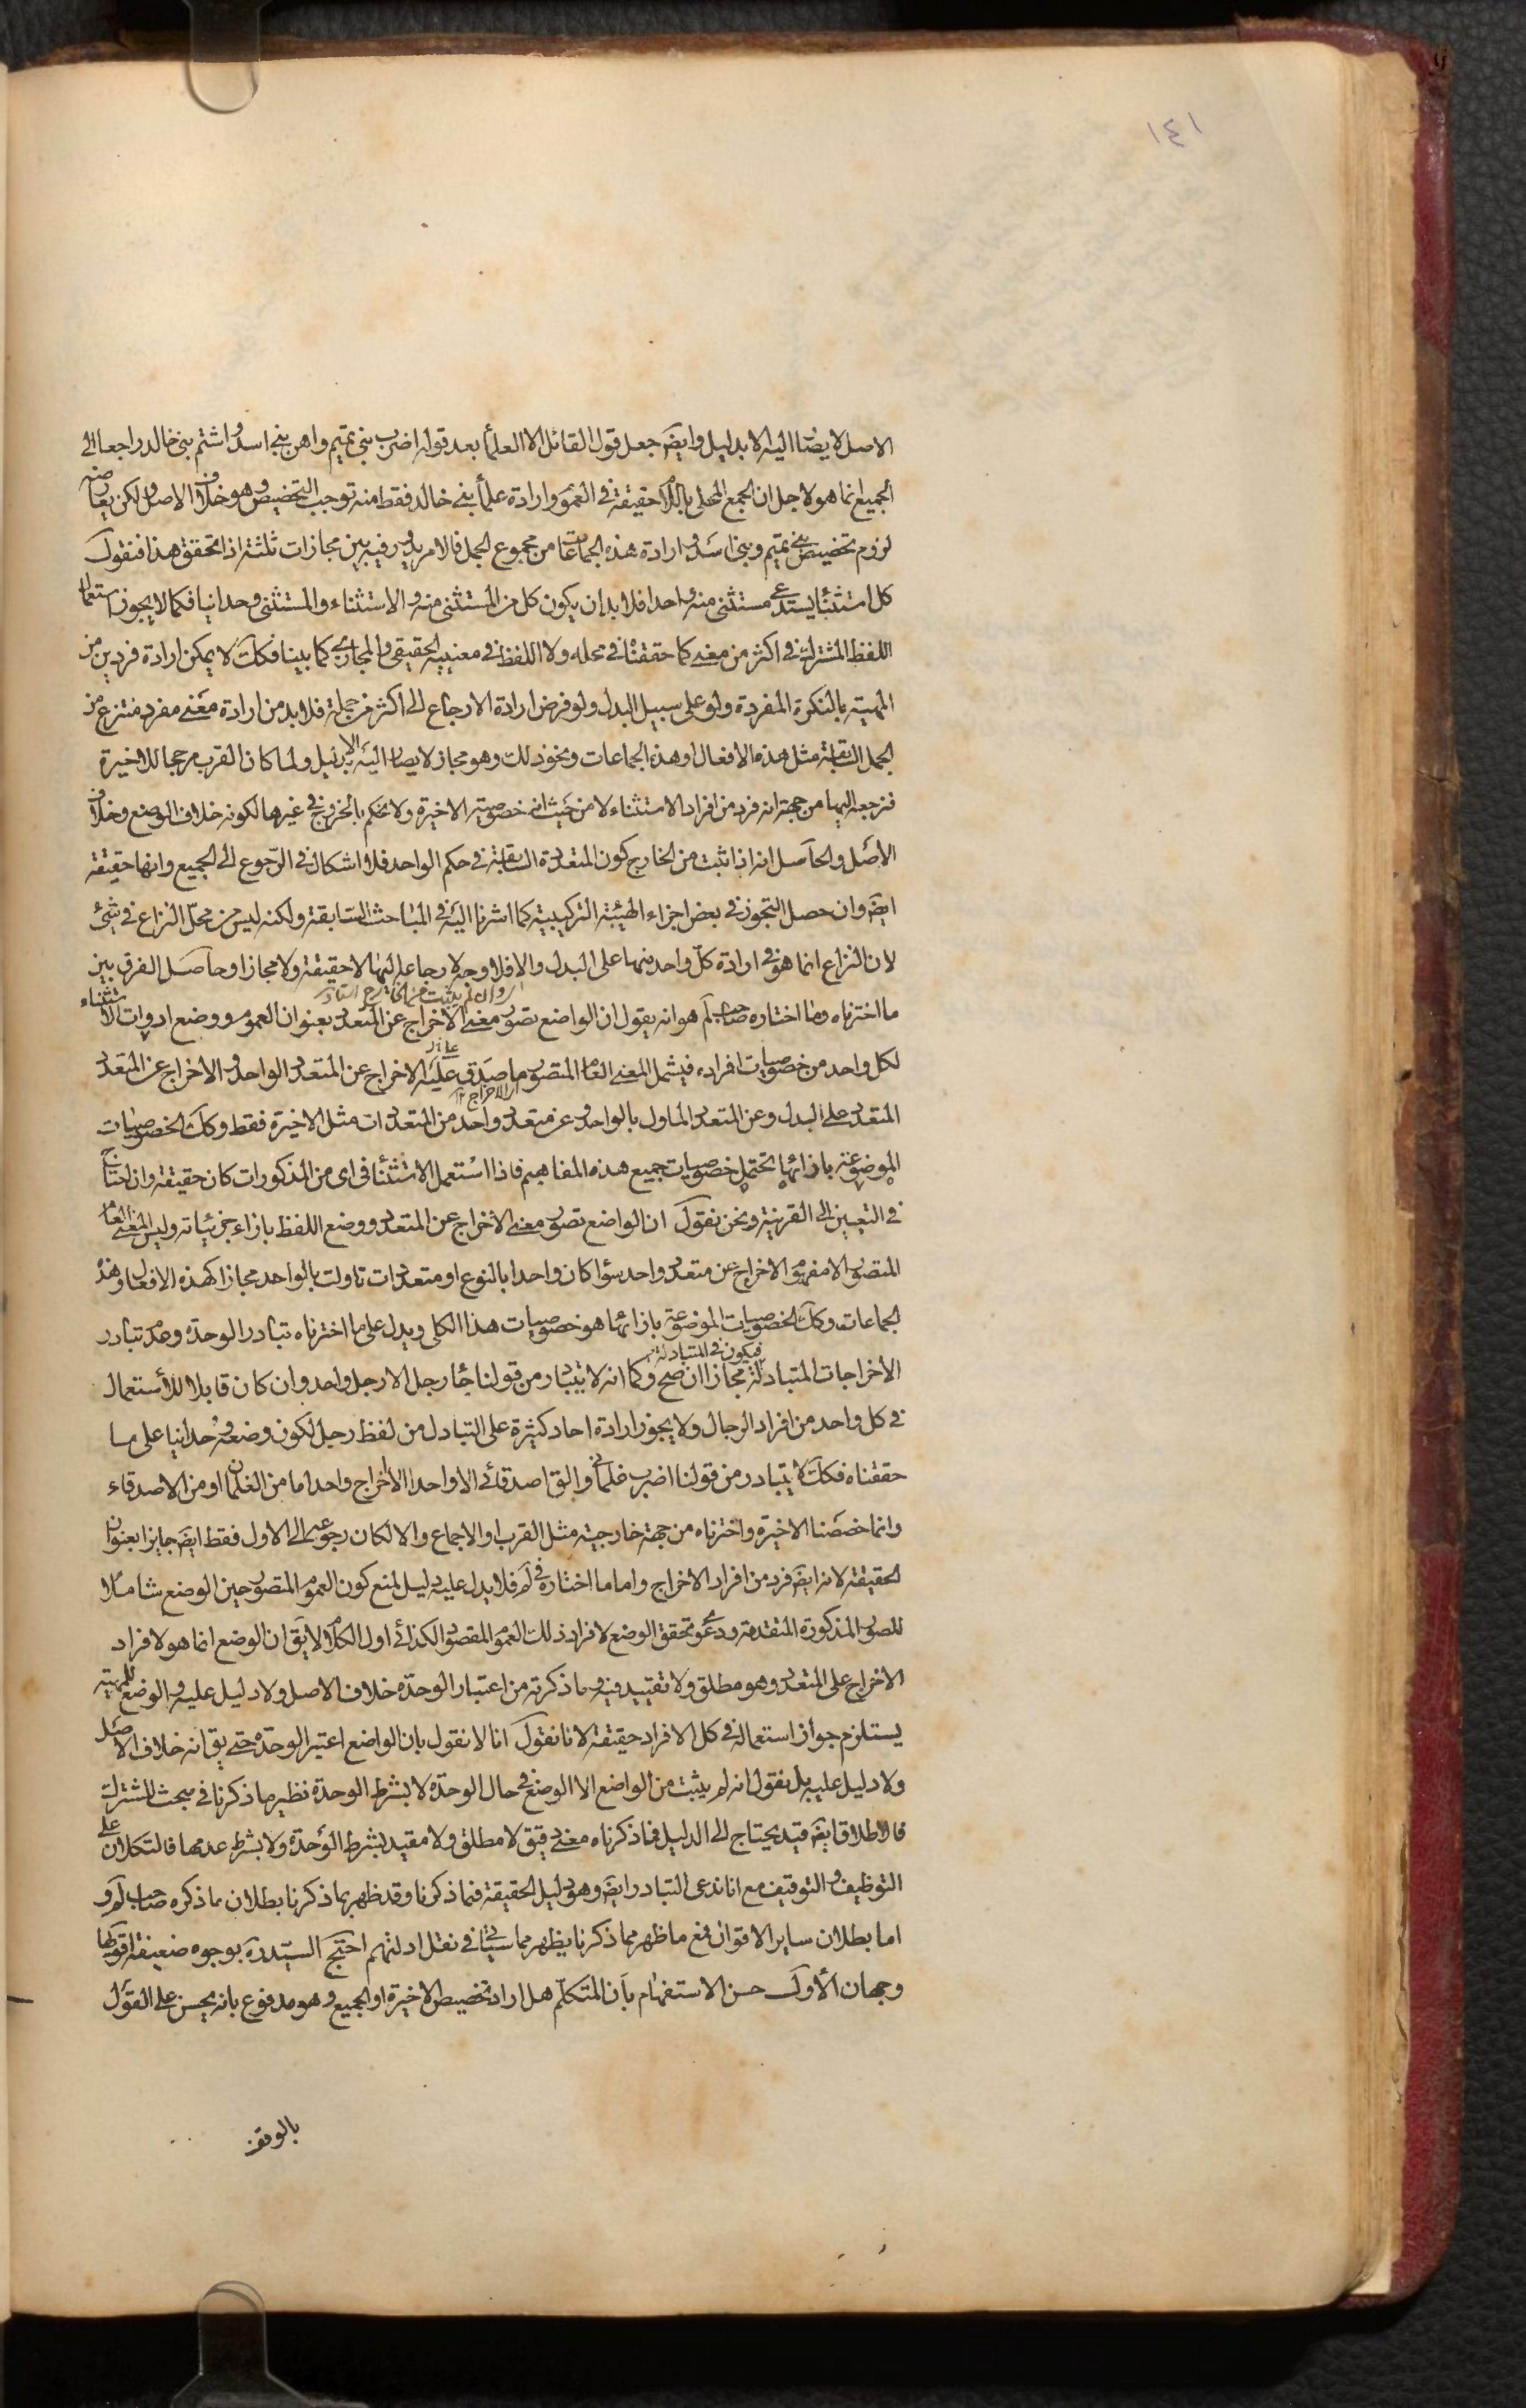 ١٤١
الاصل لا يصار اليه الا بدليل وايضَ جعل قول القائل الا العلمأ بعد قوله اضرب بنى تميم واهن بنى اسد واشتم بنى خالد راجعا الى
الجميع انما هو لاجل ان الجمع المحلى باللام حقيقة فى العموم وارادة علمأ بنى خالد فقط منه توجب التخصيص وهو خلاف الاصل لكن يعارضه
لزوم تخصيص بنى تميم وبنى اسد وارادة هذه الجماعات من مجموع الجمل فالامر يدور فيه بين مجازات ثلثة اذا تحقق هذا فنقول
كل استثنأ يستدعى مستثنى منه واحدا فلا بد ان يكون كل من المستثنى منه والاستثناء والمستثنى وحدانيا فكما لا يجوز استعمال
اللفظ المشترك فى اكثر من معنى كما حققناه فى محله ولا اللفظ فى معنييه الحقيقى والمجازى كما بينا فكك لا يمكن ارادة فردين من
المهية بالنكرة المفردة ولو على سبيل البدل ولو فرض ارادة الارجاع الى اكثر من جملة فلا بد من ارادة معنى مفرد منتزع من
الجمل السابقة مثل هذه الافعال او هذه الجماعات ونحو ذلك وهو مجاز لا يصار اليه الا بدليل ولما كان القرب مرجحا للاخيرة
فنرجعه اليها من جهة انه فرد من افراد الاستثناء لا من حيث انه خصوصية الاخيرة ولا نحكم بالخروج فى غيرها لكونه خلاف الوضع وخلاف
الاصل والحاصل انه اذا ثبت من الخارج كون المتعددة السابقة فى حكم الواحد فلا اشكال فى الرجوع الى الجميع وانها حقيقة
ايضَ وان حصل التجوز فى بعض اجزاء الهيئة التركيبية كما اشرنا اليه فى المباحث السابقة ولكنه ليس من محل النزاع فى شئ
لان النزاع انما هو فى ارادة كل واحد منها على البدل والا فلا وجه لارجاعه اليها لا حقيقة ولا مجازا وحاصل الفرق بين
اى وان لم يثبت من الخارج
ما اخترناه وما اختاره صاحب لم هو انه يقول ان الواضع تصور معنى الاخراج عن المتعدد بعنوان العموم ووضع ادوات الاستثناء
لكل واحد من خصوصيات افراده فيشمل المعنى العام المتصور ما صدق عليه الاخراج عن المتعدد الواحد والاخراج عن المتعدد
اى الاخراج
المتعدد على البدل وعن المتعدد الماول بالواحد وعن متعدد واحد من المتعددات مثل الاخيرة فقط وكك الخصوصيات
الموضوعة بازائها تحتمل خصوصيات جميع هذه المفاهيم فاذا استعمل الاستثنأ فى اى من المذكورات كان حقيقة وان احتاج
فى التعيين الى القرينة ونحن نقول ان الواضع تصور معنى الاخراج عن المتعدد ووضع اللفظ بازاء جزئياته وليس المعنى العام
المتصور الا مفهوم الاخراج عن متعدد واحد سوأ كان واحدا بالنوع او متعددات تاولت بالواحد مجازا كهذه الافعال وهذه
الجماعات وكك الخصوصيات الموضوعة بازائها هو خصوصيات هذا الكلى ويدل على ما اخترناه تبادر الوحدة وعدم تبادر
فيكون فى المتبادلة
الاخراجات المتبادلة مجازا ان صح وكما انه لا يتبادر من قولنا جأ رجل الا رجل واحد وان كان قابلا للاستعمال
فى كل واحد من افراد الرجال ولا يجوز ارادة احاد كثيرة على التبادل من لفظ رجل لكون وضعه وحدانيا على ما
حققناه فكك لا يتبادر من قولنا اضرب غلمانى والق اصدقائى الا واحدا الا اخراج واحد اما من الغلمان او من الاصدقاء
وانما خصصنا الاخيرة واخترناه من جهة خارجية مثل القرب او الاجماع والا لكان رجوعه الى الاول فقط ايضَ جايزا بعنوان
الحقيقة لانه ايضَ فرد من افراد الاخراج واما ما اختاره فى لم فلا يدل عليه دليل لمنع كون العموم المتصور حين الوضع شاملا
للصور المذكورة المتقدمة ودعوى تحقق الوضع لافراد ذلك العموم المقصور الكذائى اول الكلام لا يق ان الوضع انما هو لافراد
الاخراج على المتعدد وهو مطلق ولا تقييد فيه وما ذكرته من اعتبار الوحدة خلاف الاصل ولا دليل عليه والوضع للمهية
يستلزم جواز استعماله فى كل الافراد حقيقة لانا نقول انا لا نقول بان الواضع اعتبر الوحدة حتى يق انه خلاف الاصل
ولا دليل عليه بل نقول انه لم يثبت من الواضع الا الوضع فى حال الوحدة لا بشرط الوحدة نظير ما ذكرنا فى مبحث المشترك
فالاطلاق ايضَ قيد يحتاج الى الدليل فما ذكرناه معنى دقيق لا مطلق ولا مقيد بشرط الوحدة ولا بشرط عدمها فالتكلان على
التوظيف والتوقيف مع انا ندعى التبادر ايضَ وهو دليل الحقيقة فيما ذكرنا وقد ظهر بما ذكرنا بطلان ما ذكره صاحب لم و
اما بطلان ساير الاقوال فمع ما ظهر مما ذكرنا يظهر مما سياتى فى نقل ادلتهم احتج السيد ره بوجوه ضعيفة اقويها
وجهان الاول حسن الاستفهام بان المتكلم هل اراد تخصيص الاخيرة او الجميع وهو مدفوع بانه يحسن على القول
بالوقف